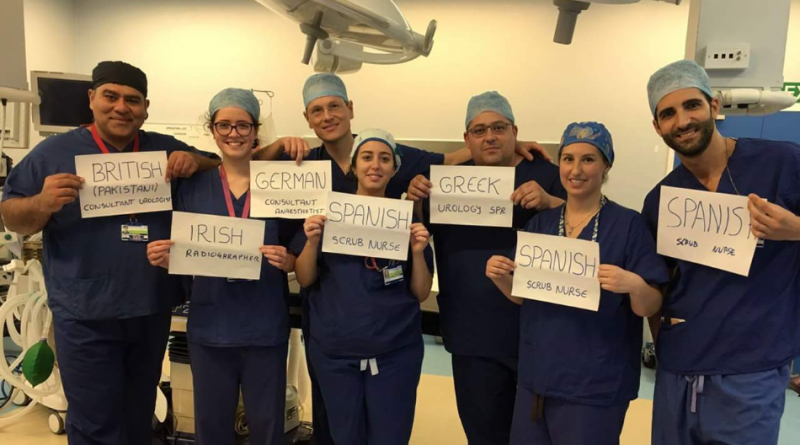 BRITISH
(PAKISTANI)
CONSULTANT UROLOGIST
IRISH
RADIOGRAPHER
GERMAN
CONSULTANT
ANAESTHETIST
SPANISH
SCRUB NURSE
GREEK
UROLOGY SPR
SPANISH
SCRUB NURSE
SPANISH
SCRUB NURSE